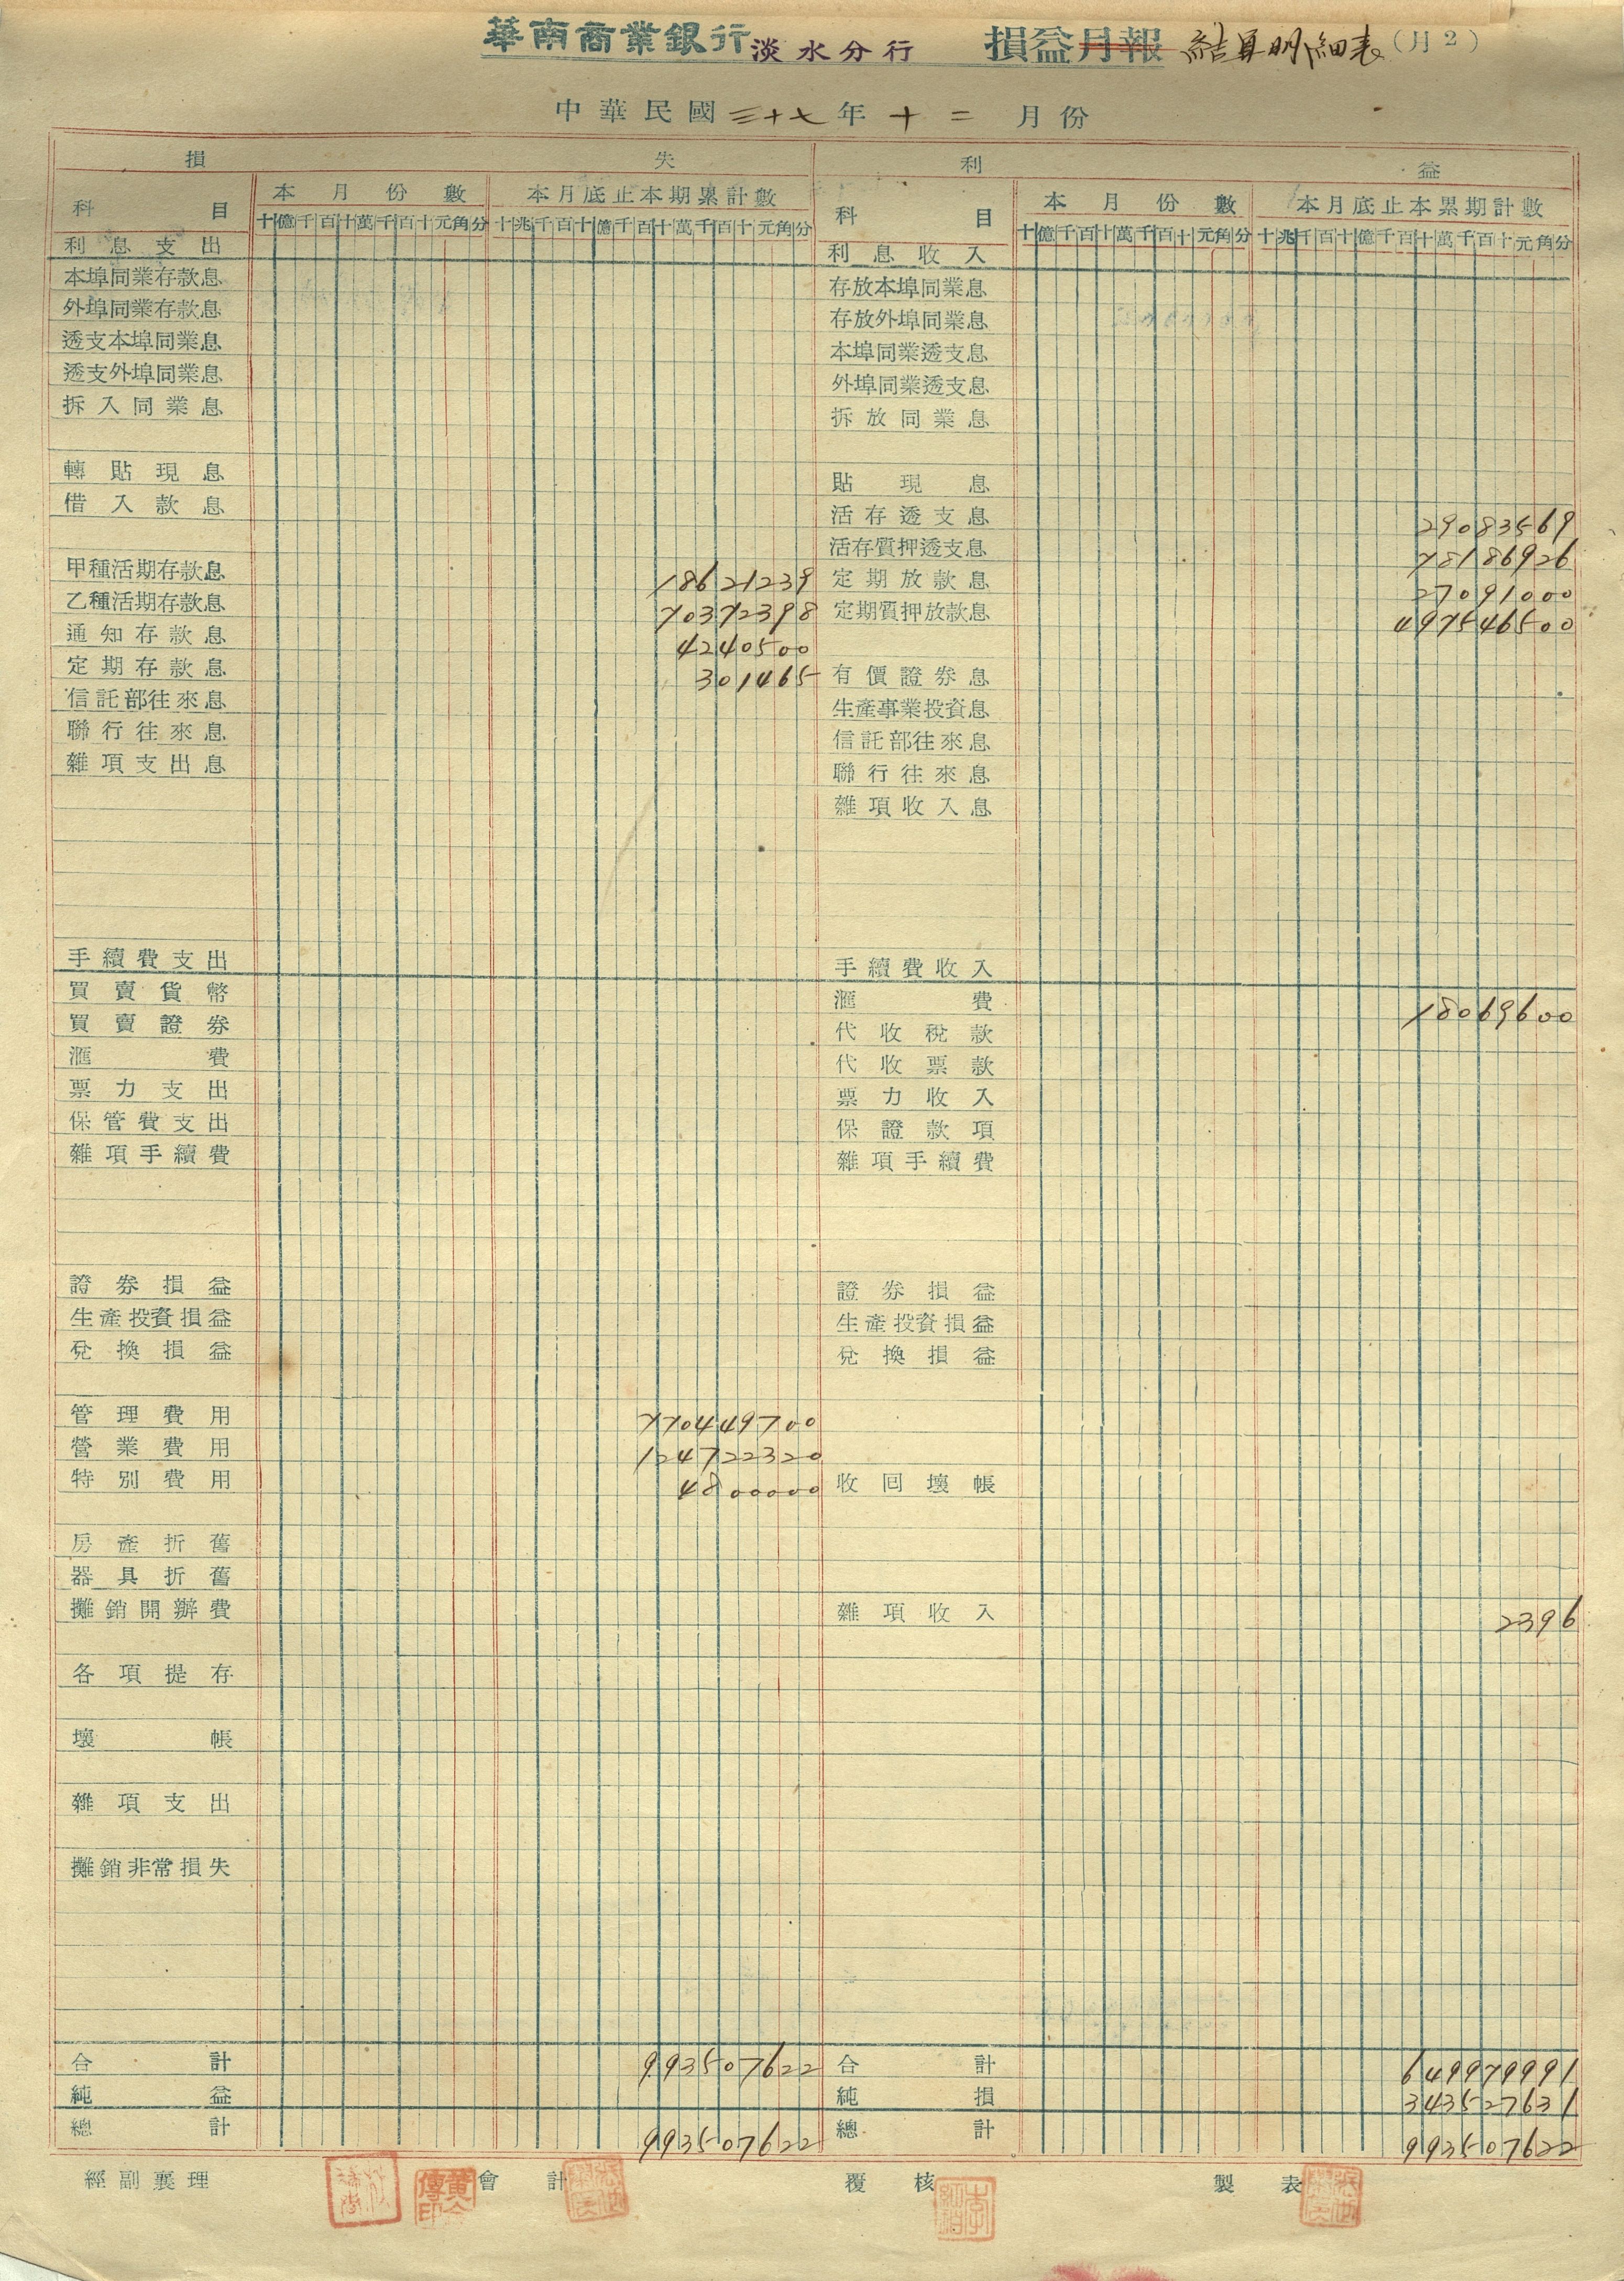 華南商業銀行淡水分行 損益月報 結算明細表 (月2)
中華民國三十七年十二月份
損 失 利 益
科目 本月份數 本月底止本期累計數 科目 本月份數 本月底止本累期計數
十億千百十萬千百十元角分 十兆千百十億千百十萬千百十元角分 十億千百十萬千百十元角分 十兆千百十億千百十萬千百十元角分
利息支出 利息收入
本埠同業存款息 存放本埠同業息
外埠同業存款息 存放外埠同業息
透支本埠同業息 本埠同業透支息
透支外埠同業息 外埠同業透支息
拆入同業息 拆放同業息
轉貼現息 貼現息
借入款息 活存透支息 29083569
活存質押透支息 78186926
甲種活期存款息 18621239 定期放款息 27091000
乙種活期存款息 70372398 定期質押放款息 497546500
通知存款息 4240500
定期存款息 301465 有價證券息
信託部往來息 生產事業投資息
聯行往來息 信託部往來息
雜項支出息 聯行往來息
雜項收入息
手續費支出 手續費收入
買賣貨幣 滙費 18069600
買賣證券 代收稅款
滙費 代收票款
票力支出 票力收入
保管費支出 保證款項
雜項手續費 雜項手續費
證券損益 證券損益
生產投資損益 生產投資損益
兌換損益 兌換損益
管理費用 770449700
營業費用 124722320
特別費用 4800000 收回壞帳
房產折舊
器具折舊
攤銷開辦費 雜項收入 2396
各項提存
壞帳
雜項支出
攤銷非常損失
合計 993507622 合計 649979991
純益 純損 343527631
總計 993507622 總計 993507622
經副襄理 會計 覆核 製表